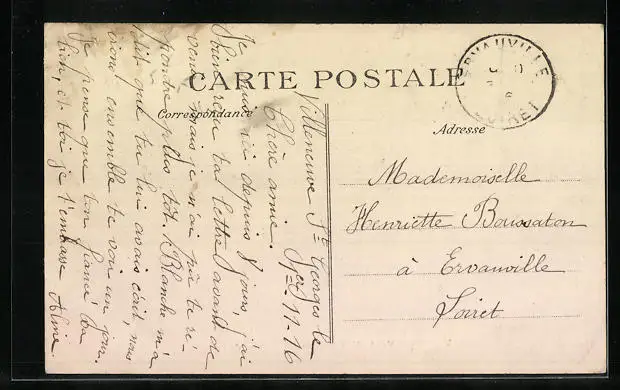 CARTE POSTALE
Correspondance
Adresse
ERVAUVILLE
LOIRET
Mademoiselle
Henriette Boussaton
à Ervauville
Loiret
Villeneuve St Georges le
11-16
Chère amie.
Je suis ici depuis 8 jours, j'ai
bien reçu ta lettre avant de
venir mais je n'ai pu te ré-
pondre plus tôt. Blanche m'a
dit que tu lui avais écrit, nous
irons ensemble te voir un jour.
Je pense que ton fiancé va
bien, et toi je t'embrasse Aline